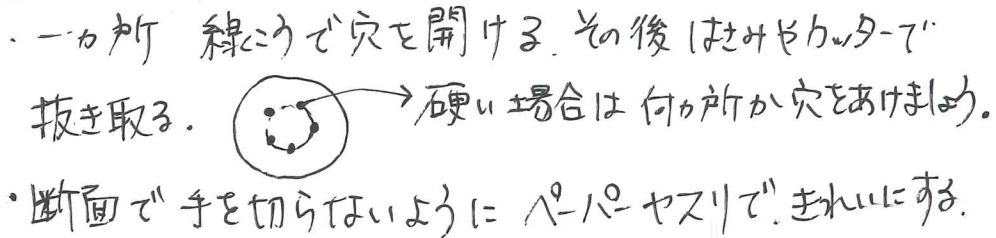 ・一ヵ所 線こうで穴を開ける.その後はさみやカッターで
抜き取る. →硬い場合は何ヵ所か穴をあけましょう.
・断面で手を切らないようにペーパーヤスリで.きれいにする.